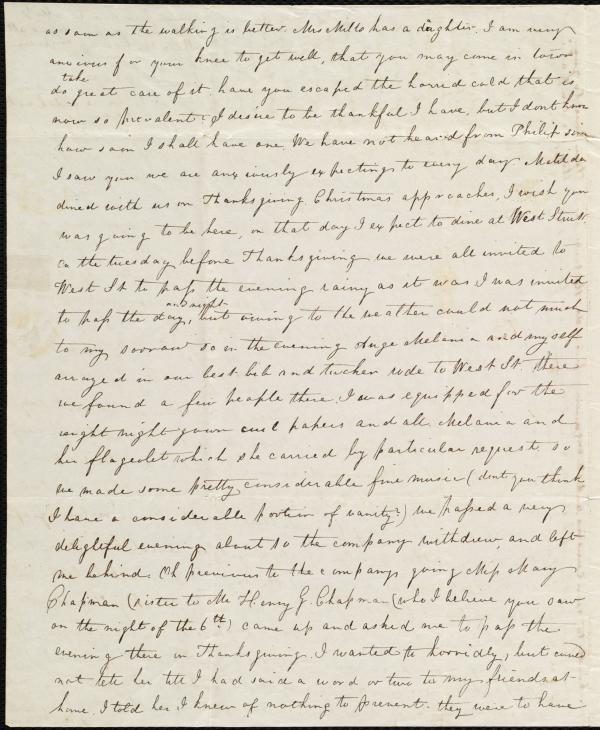 as soon as the walking is better. Mrs Mills has a daughter. I am very
anxious for your knee to get well, that you may come in town
take
do great care of it. have you escaped the horrid cold that is
now so prevalent? I desire to be thankful I have, but I dont know
how soon I shall have one. We have not heard from Philip since
I saw you we are anxiously expecting to every day Matilda
dined with us on Thanksgiving Christmas approaches, I wish you
was going to be here, on that day I expect to dine at West Street
On the tuesday before Thanksgiving we were all invited to
West St to pass the evening rainy as it was I was invited
and night
to pass the day, but owing to the weather could not much
to my sorrow so in the evening Auge Melania and myself
arrayed in our best bib and tucker rode to West St. there
we found a few people there. I was equipped for the
night night gown curl papers and all. Melania and
her flageolet which she carried by particular request. so
we made some pretty considerable fine music (dont you think
I have a considerable portion of vanity?) we passed a very
delightful evening, about 10 the company withdrew and left
me behind. Oh previous to the companys going Miss Mary
Chapman (sister to Mr Henry G. Chapman (who I believe you saw
on the night of the 6th) came up and asked me to pass the
evening there in Thanksgiving. I wanted to horridly, but could
not tell her till I had said a word or two to my friends at
home. I told her I knew of nothing to prevent. they were to have